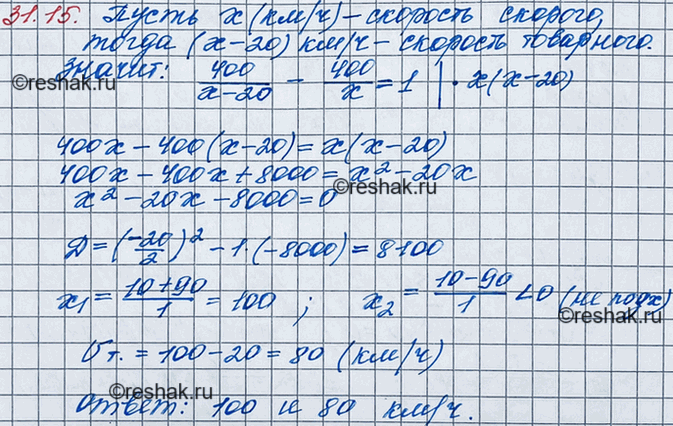 31.15. Пусть x (км/ч) – скорость скорого,
тогда (x-20) км/ч – скорость товарного.
Значит: 400/(x-20) - 400/x = 1 | · x(x-20)
©reshak.ru
©reshak.ru
400x - 400(x-20) = x(x-20)
400x - 400x + 8000 = x² - 20x
©reshak.ru
x² - 20x - 8000 = 0
Д = (-20/2)² - 1·(-8000) = 8100
x₁ = (10+90)/1 = 100 ; x₂ = (10-90)/1 < 0 (не подх)
©reshak.ru
Vт. = 100 - 20 = 80 (км/ч)
©reshak.ru
Ответ: 100 и 80 км/ч.